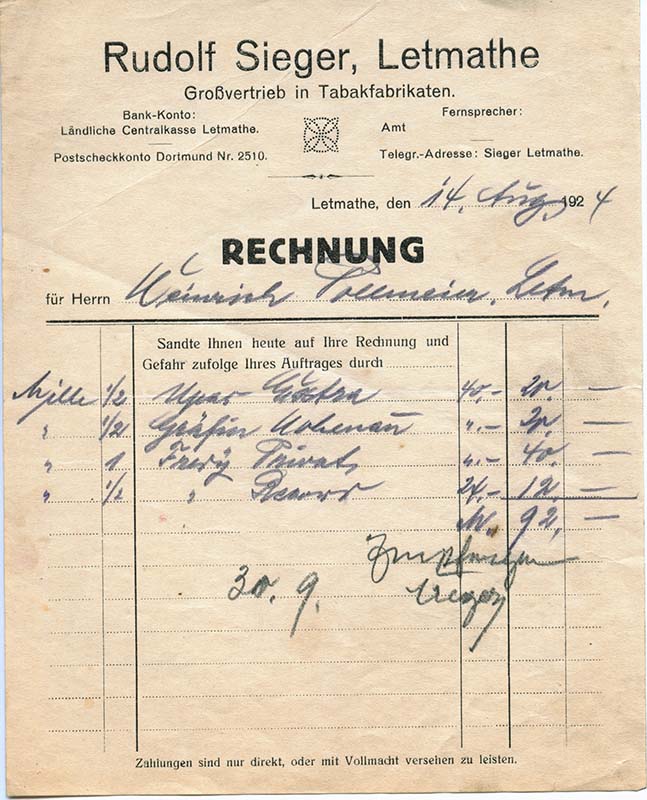 Rudolf Sieger, Letmathe
Großvertrieb in Tabakfabrikaten.
Bank-Konto:
Ländliche Centralkasse Letmathe.
Postscheckkonto Dortmund Nr. 2510.
Fernsprecher:
Amt
Telegr.-Adresse: Sieger Letmathe.
Letmathe, den 14. Aug. 1924
RECHNUNG
für Herrn Heinrich Letm.
Sandte Ihnen heute auf Ihre Rechnung und
Gefahr zufolge Ihres Auftrages durch
Mille 1/2 40.- 20. —
" 1/2 Gräfin ".- 20. —
" 1 Privat ".- 40. —
" 1/2 " Record 24.- 12. —
M. 92. —
30. 9.
Zahlungen sind nur direkt, oder mit Vollmacht versehen zu leisten.